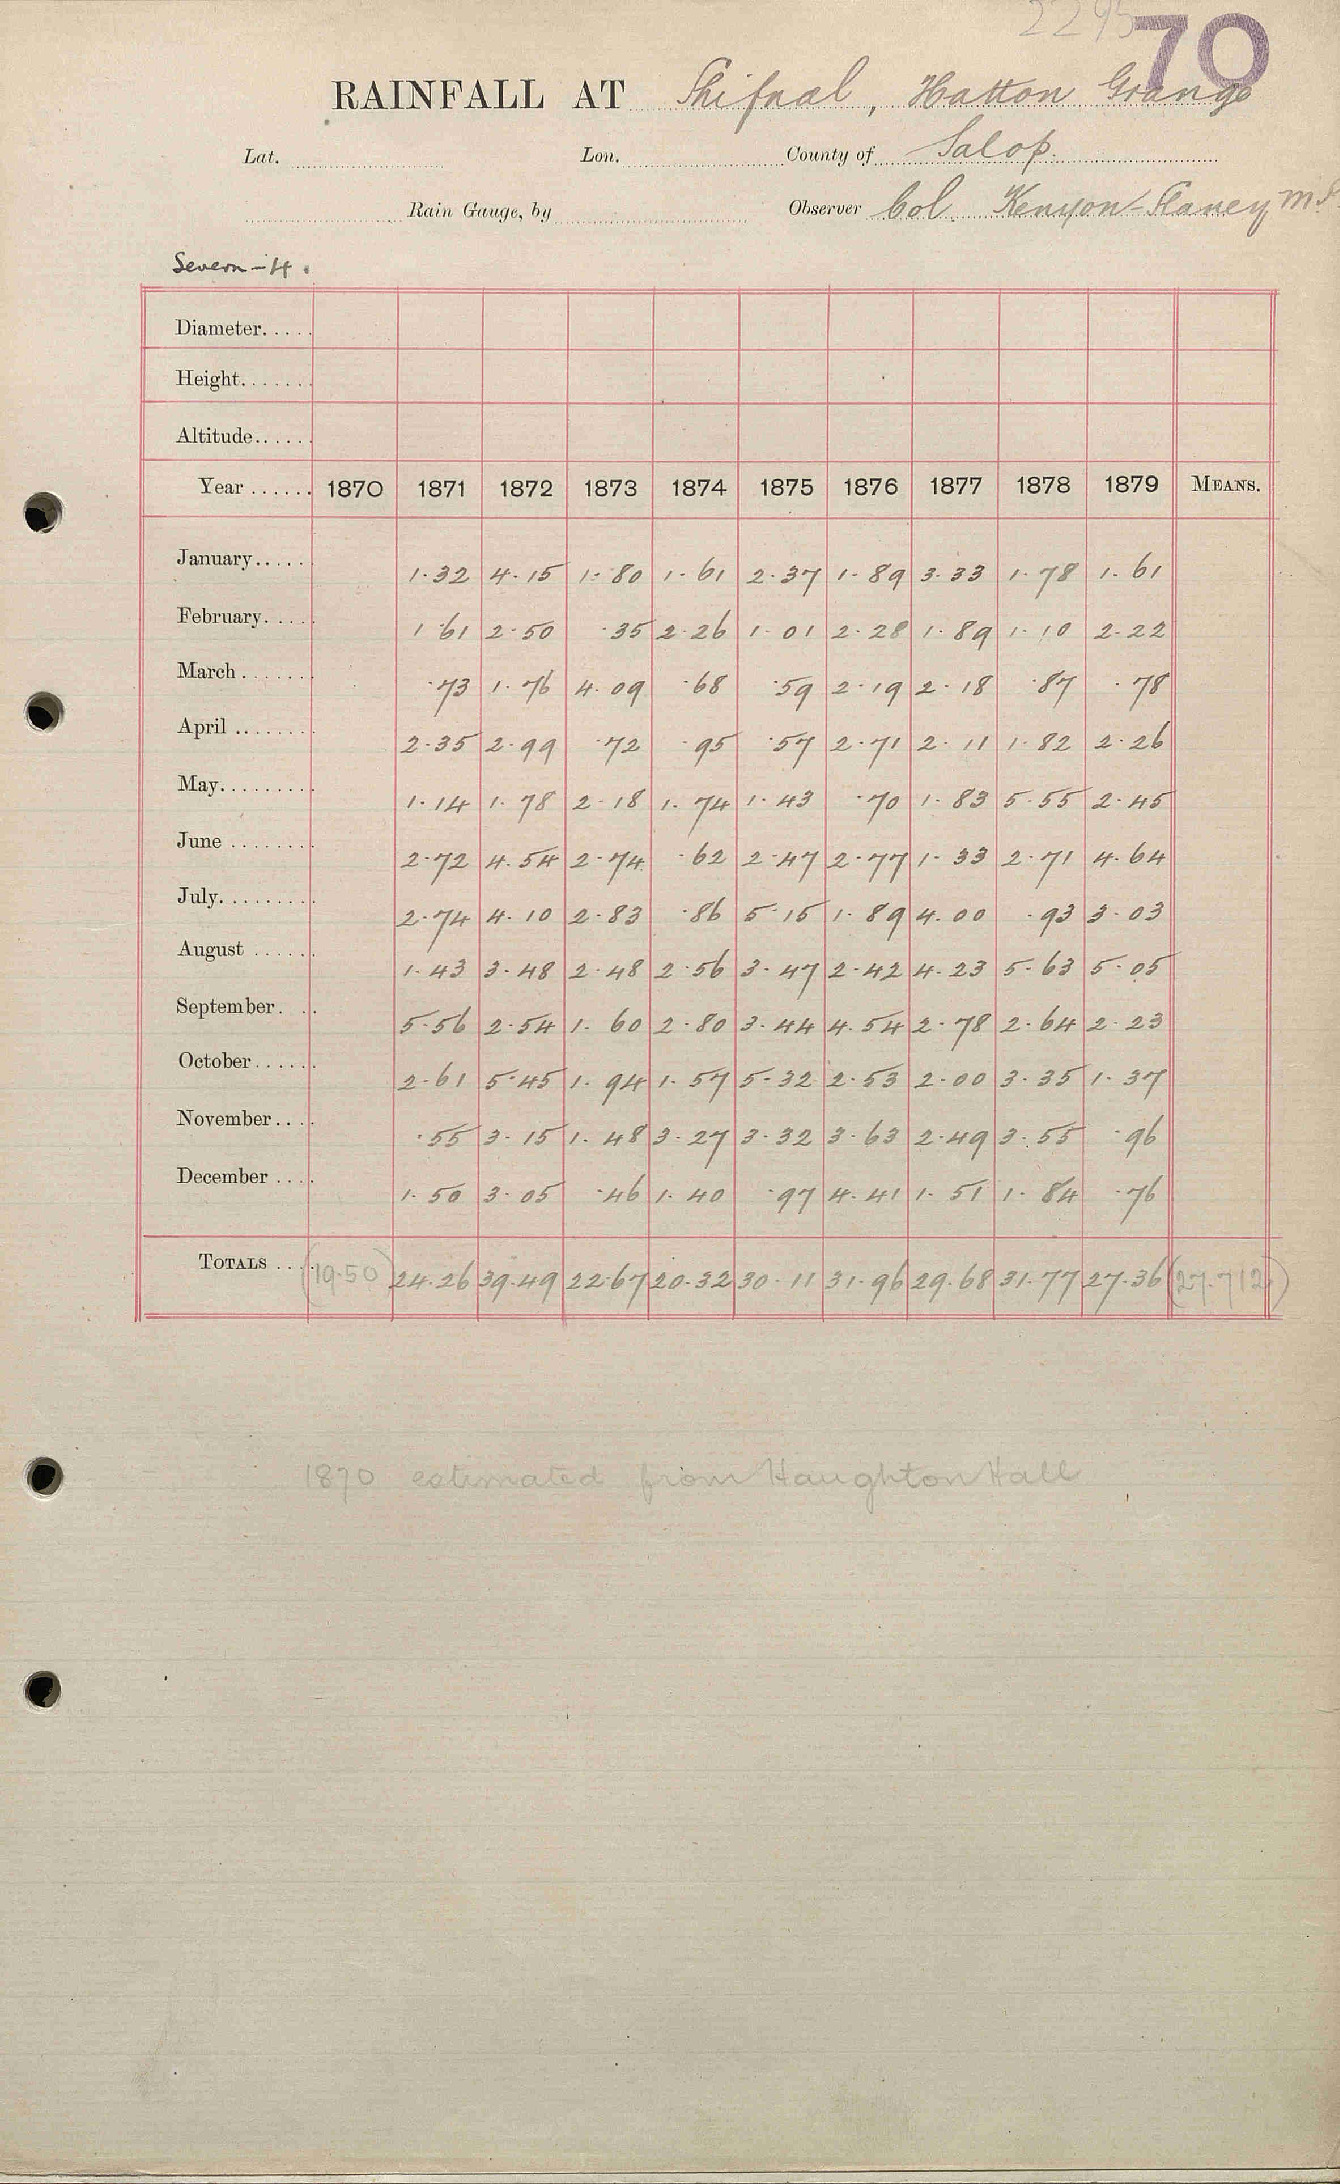 2295 70
RAINFALL AT Shifnal, Hatton Grange
Lat. Lon. County of Salop.
Rain Gauge, by Observer Col. Kenyon-Slaney, M.P.
Severn-4.
Diameter.....
Height.......
Altitude......
Year ...... 1870 1871 1872 1873 1874 1875 1876 1877 1878 1879 MEANS.
January..... 1.32 4.15 1.80 1.61 2.37 1.89 3.33 1.78 1.61
February..... 1.61 2.50 .35 2.26 1.01 2.28 1.89 1.10 2.22
March ....... .73 1.76 4.09 .68 .59 2.19 2.18 .87 .78
April ........ 2.35 2.99 .72 .95 .57 2.71 2.11 1.82 2.26
May......... 1.14 1.78 2.18 1.74 1.43 .70 1.83 5.55 2.45
June ........ 2.72 4.54 2.74 .62 2.47 2.77 1.33 2.71 4.64
July......... 2.74 4.10 2.83 .86 5.15 1.89 4.00 .93 3.03
August ...... 1.43 3.48 2.48 2.56 3.47 2.42 4.23 5.63 5.05
September. .. 5.56 2.54 1.60 2.80 3.44 4.54 2.78 2.64 2.23
October...... 2.61 5.45 1.94 1.57 5.32 2.53 2.00 3.35 1.37
November.... .55 3.15 1.48 3.27 3.32 3.63 2.49 3.55 .96
December .... 1.50 3.05 .46 1.40 .97 4.41 1.51 1.84 .76
TOTALS .... (19.50) 24.26 39.49 22.67 20.32 30.11 31.96 29.68 31.77 27.36 (27.712)
1870 estimated from Haughton Hall